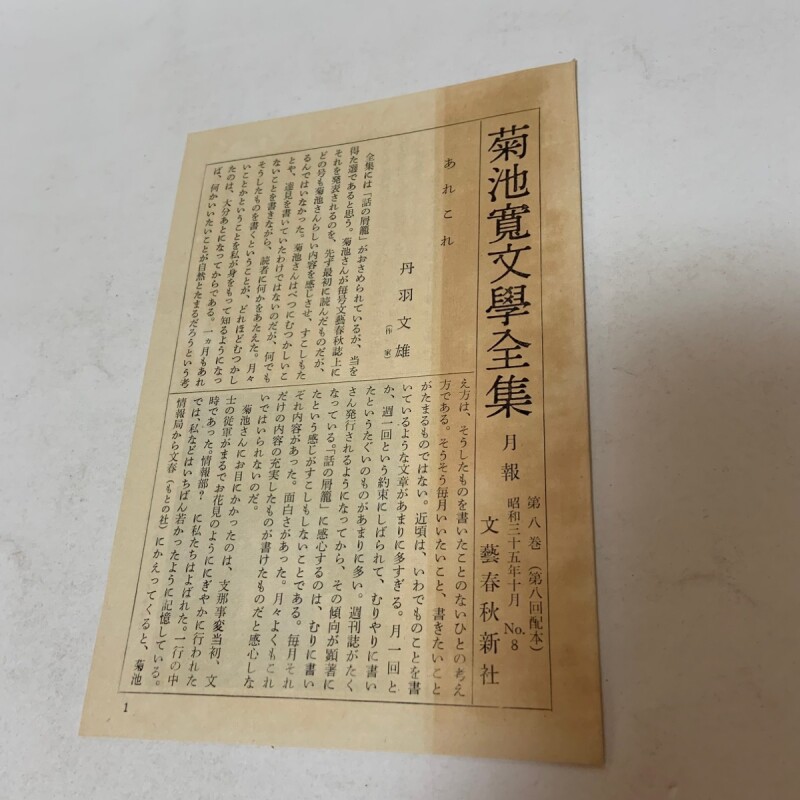 菊池寛文學全集 月報
第八巻（第八回配本）
昭和三十五年十月 No.8
文藝春秋新社
あれこれ
丹羽文雄
（作家）
全集には「話の屑籠」がおさめられているが、当を
得た選であると思う。菊池さんが毎号文藝春秋誌上に
それを発表されるのを、先ず最初に読んだものだが、
どの号も菊池さんらしい内容を感じさせ、すこしもた
るんではいなかった。菊池さんはべつにむつかしいこ
とや、達見を書いていたわけではないのだが、何でも
ないことを書きながら、読者に何かをあたえた。月々
そうしたものを書くということが、どれほどむつかし
いことかということを私が身をもって知るようになっ
たのは、大分あとになってからである。一ヵ月もあれ
ば、何かいいたいことが自然とたまるだろうという考
え方は、そうしたものを書いたことのないひとの考え
方である。そうそう毎月いいたいこと、書きたいこと
がたまるものではない。近頃は、いわでものことを書
いているような文章があまりに多すぎる。月一回と
か、週一回という約束にしばられて、むりやりに書い
たというたぐいのものがあまりに多い。週刊誌がたく
さん発行されるようになってから、その傾向が顕著に
なっている。「話の屑籠」に感心するのは、むりに書い
たという感じがすこしもしないことである。毎月それ
ぞれ内容があった。面白さがあった。月々よくもこれ
だけの内容の充実したものが書けたものだと感心しな
いではいられないのだ。
菊池さんにお目にかかったのは、支那事変当初、文
士の従軍がまるでお花見のようににぎやかに行われた
時であった。情報部？ に私たちはよばれた。一行の中
では、私などはいちばん若かったように記憶している。
情報局から文春（もとの社）にかえってくると、菊池
1